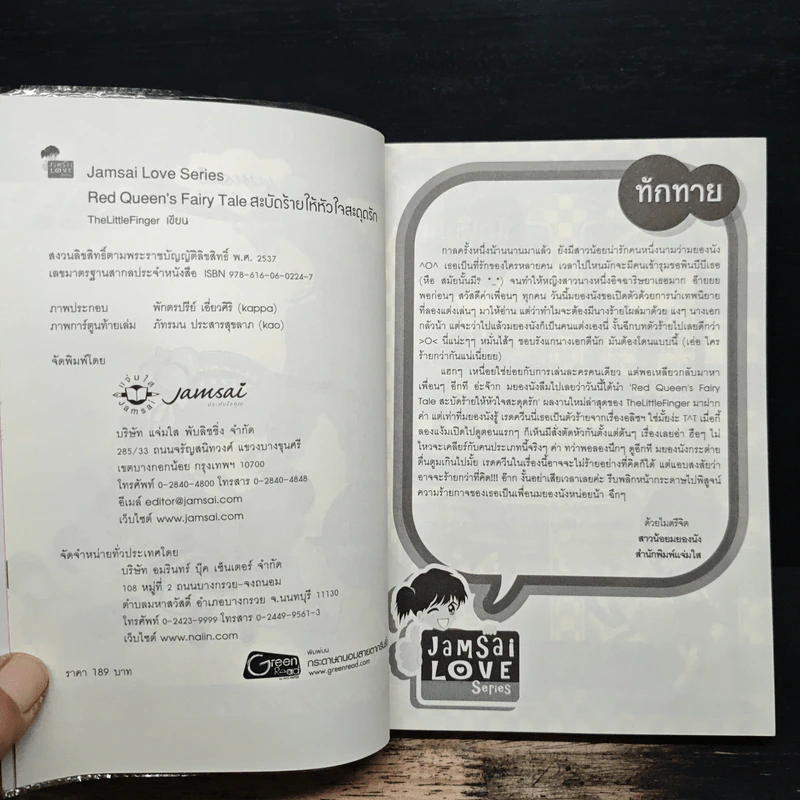 JAMSAI
LOVE
Series
Jamsai Love Series
Red Queen's Fairy Tale สะบัดร้ายให้หัวใจสะดุดรัก
TheLittleFinger เขียน
สงวนลิขสิทธิ์ตามพระราชบัญญัติลิขสิทธิ์ พ.ศ. 2537
เลขมาตรฐานสากลประจำหนังสือ ISBN 978-616-06-0224-7
ภาพประกอบ พักตรปรีย์ เอี่ยวศิริ (kappa)
ภาพการ์ตูนท้ายเล่ม ภัทรมน ประสารสุขลาภ (kao)
จัดพิมพ์โดย
แจ่มใส
Jamsai
Jamsai
บริษัท แจ่มใส พับลิชชิ่ง จำกัด
285/33 ถนนจรัญสนิทวงศ์ แขวงบางขุนศรี
เขตบางกอกน้อย กรุงเทพฯ 10700
โทรศัพท์ 0-2840-4800 โทรสาร 0-2840-4848
อีเมล์ editor@jamsai.com
เว็บไซต์ www.jamsai.com
จัดจำหน่ายทั่วประเทศโดย
บริษัท อมรินทร์ บุ๊ค เซ็นเตอร์ จำกัด
108 หมู่ที่ 2 ถนนบางกรวย-จงถนอม
ตำบลมหาสวัสดิ์ อำเภอบางกรวย จ.นนทบุรี 11130
โทรศัพท์ 0-2423-9999 โทรสาร 0-2449-9561-3
เว็บไซต์ www.naiin.com
ราคา 189 บาท
Green
Read
พิมพ์บน
กระดาษถนอมสายตากรีนรี้ด
www.greenread.com
ทักทาย
กาลครั้งหนึ่งนานนานมาแล้ว ยังมีสาวน้อยน่ารักคนหนึ่งนามว่ามยองนัง
^O^ เธอเป็นที่รักของใครหลายคน เวลาไปไหนมักจะมีคนเข้ารุมขอพินบีบีเธอ
(หือ สมัยนั้นมีร *_*) จนทำให้หญิงสาวนางหนึ่งอิจฉาริษยาเธอมาก อ้ายยย
พอก่อนๆ สวัสดีค่าเพื่อนๆ ทุกคน วันนี้มยองนังขอเปิดตัวด้วยการนำเทพนิยาย
ที่ลองแต่งเล่นๆ มาให้อ่าน แต่ว่าทำไมจะต้องมีนางร้ายโผล่มาด้วย แงๆ นางเอก
กลัวน้า แต่จะว่าไปแล้วมยองนังก็เป็นคนแต่งเองนี่ งั้นฉีกบทตัวร้ายไปเลยดีกว่า
>O< นี่แน่ะๆๆ หมั่นไส้ๆ ชอบรังแกนางเอกดีนัก มันต้องโดนแบบนี้ (เอ่อ ใคร
ร้ายกว่ากันแน่เนี่ยยย)
แฮกๆ เหนื่อยใช่ย่อยกับการเล่นละครคนเดียว แต่พอเหลียวกลับมาหา
เพื่อนๆ อีกที อ่ะจ๊าก มยองนังลืมไปเลยว่าวันนี้ได้นำ 'Red Queen's Fairy
Tale สะบัดร้ายให้หัวใจสะดุดรัก' ผลงานใหม่ล่าสุดของ TheLittleFinger มาฝาก
ค่า แต่เท่าที่มยองนังรู้ เรดควีนนี่เธอเป็นตัวร้ายจากเรื่องอลิซฯ ใช่มั้ยง่ะ T^T เมื่อกี้
ลองแง้มเปิดไปดูตอนแรกๆ ก็เห็นมีสั่งตัดหัวกันตั้งแต่ต้นๆ เรื่องเลยอ่า ฮือๆ ไม่
ไหวจะเคลียร์กับคนประเภทนี้จริงๆ ค่า ทว่าพอลองนึกๆ ดูอีกที มยองนังกระต่าย
ตื่นตูมเกินไปมั้ย เรดควีนในเรื่องนี้อาจจะไม่ร้ายอย่างที่คิดก็ได้ แต่แอบสงสัยว่า
อาจจะร้ายกว่าที่คิด!!! อ๊าก งั้นอย่าเสียเวลาเลยค่ะ รีบพลิกหน้ากระดาษไปพิสูจน์
ความร้ายกาจของเธอเป็นเพื่อนมยองนังหน่อยน้า ฉึกๆ
ด้วยไมตรีจิต
สาวน้อยมยองนัง
สำนักพิมพ์แจ่มใส
JAMSAI
LOVE
Series